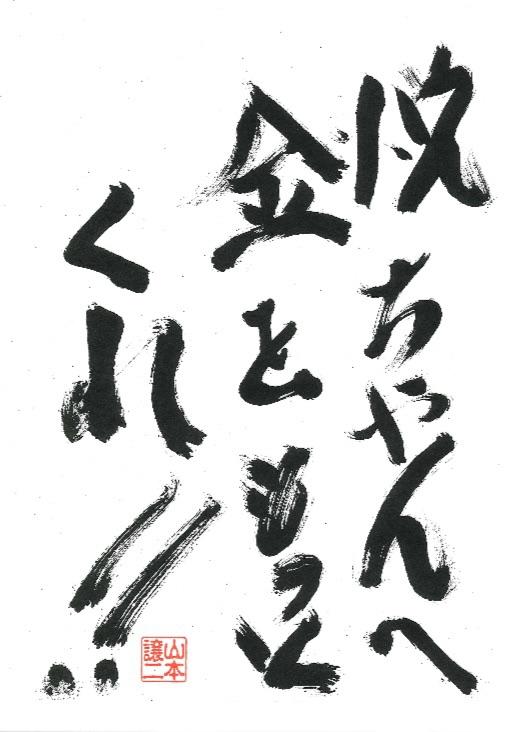 悦ちゃんへ
金をもって
くれ!!
山本
譲二